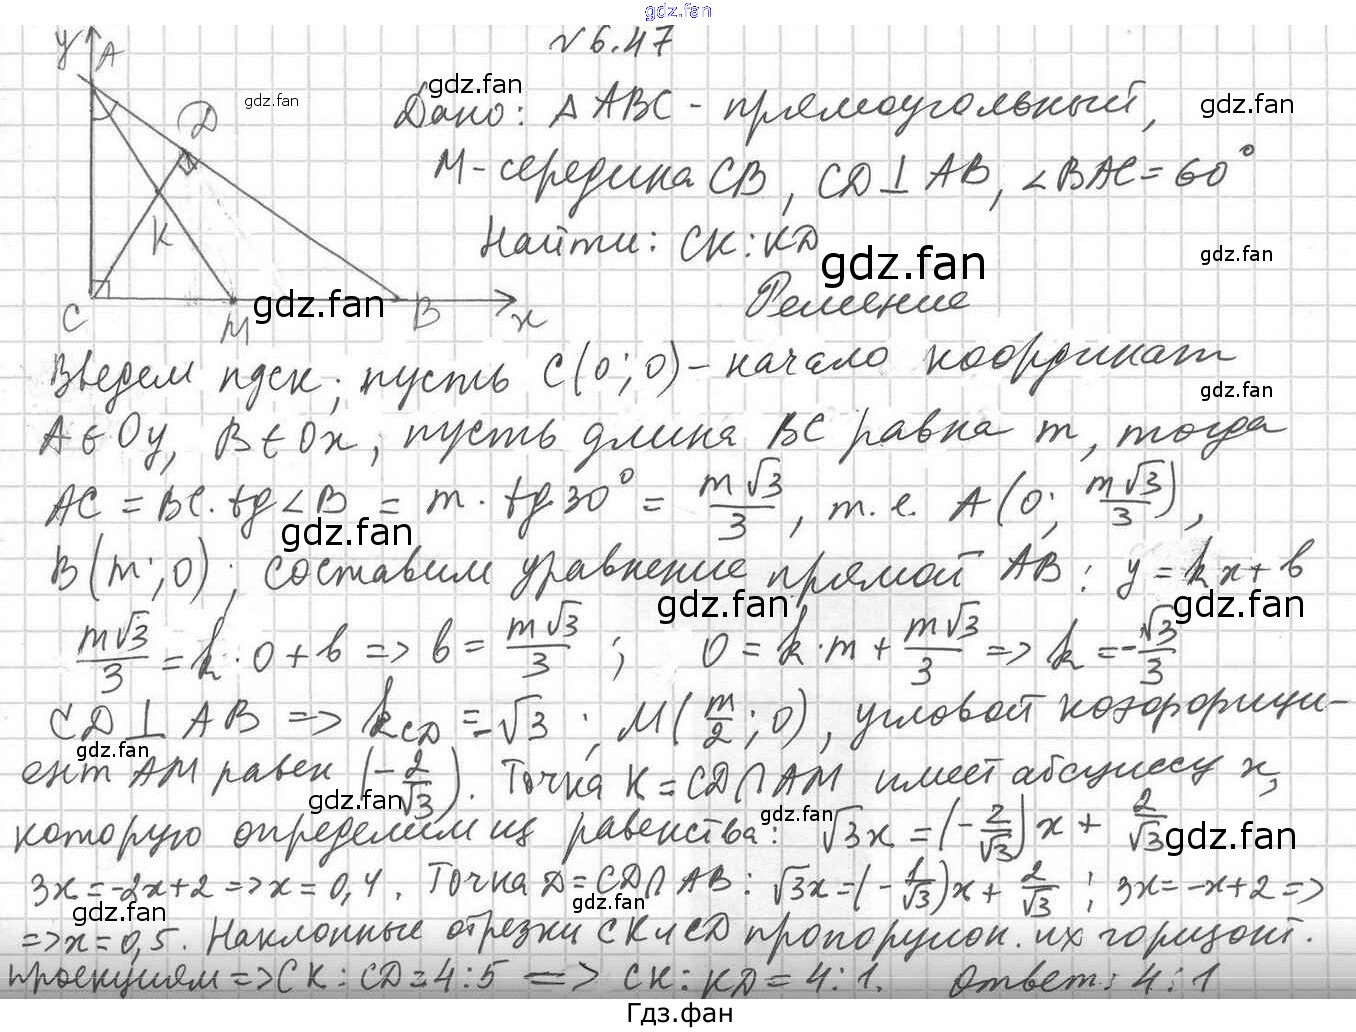 gdz.fan
№6.47
y A gdz.fan D K C M B x
gdz.fan
Дано: △ABC - прямоугольный, gdz.fan
M - середина CB, CD⊥AB, ∠BAC = 60°
Найти: CK:KD gdz.fan gdz.fan
gdz.fan Решение
Введем пдск; пусть C(0;0) - начало координат
gdz.fan
A∈Oy, B∈Ox, пусть длина BC равна m, тогда
AC = BC·tg∠B = m·tg30° = m√3/3, т.е. A(0; m√3/3),
gdz.fan
B(m;0); составим уравнение прямой AB: y = kx+b
gdz.fan gdz.fan
m√3/3 = k·0+b => b = m√3/3; 0 = k·m + m√3/3 => k = -√3/3
CD⊥AB => k_CD = √3; M(m/2; 0), угловой коэффици-
gdz.fan
ент AM равен (-2/√3). Точка K = CD∩AM имеет абсциссу x,
gdz.fan gdz.fan
которую определим из равенства: √3x = (-2/√3)x + 2/√3
gdz.fan
3x = -2x+2 => x = 0,4. Точка D = CD∩AB: √3x = (-1/√3)x + 2/√3; 3x = -x+2 =>
gdz.fan gdz.fan
=> x = 0,5. Наклонные отрезки CK и CD пропорцион. их горизонт.
проекциям => CK:CD = 4:5 => CK:KD = 4:1. Ответ: 4:1
Гдз.фан